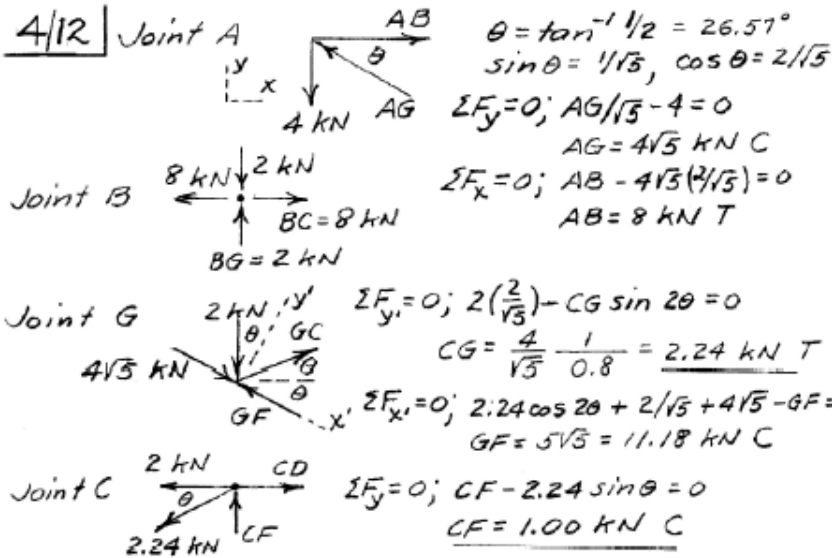 4/12 Joint A
AB
θ
y
x
4 kN
AG
θ = tan⁻¹ 1/2 = 26.57°
sin θ = 1/√5, cos θ = 2/√5
ΣFy = 0; AG/√5 - 4 = 0
AG = 4√5 kN C
ΣFx = 0; AB - 4√5(2/√5) = 0
AB = 8 kN T
Joint B
2 kN
8 kN
BC = 8 kN
BG = 2 kN
Joint G
2 kN
y'
θ
GC
4√5 kN
θ
θ
GF
x'
ΣFy' = 0; 2(2/√5) - CG sin 2θ = 0
CG = 4/√5 1/0.8 = 2.24 kN T
ΣFx' = 0; 2.24 cos 2θ + 2/√5 + 4√5 - GF =
GF = 5√5 = 11.18 kN C
Joint C
2 kN
CD
θ
2.24 kN
CF
ΣFy = 0; CF - 2.24 sin θ = 0
CF = 1.00 kN C